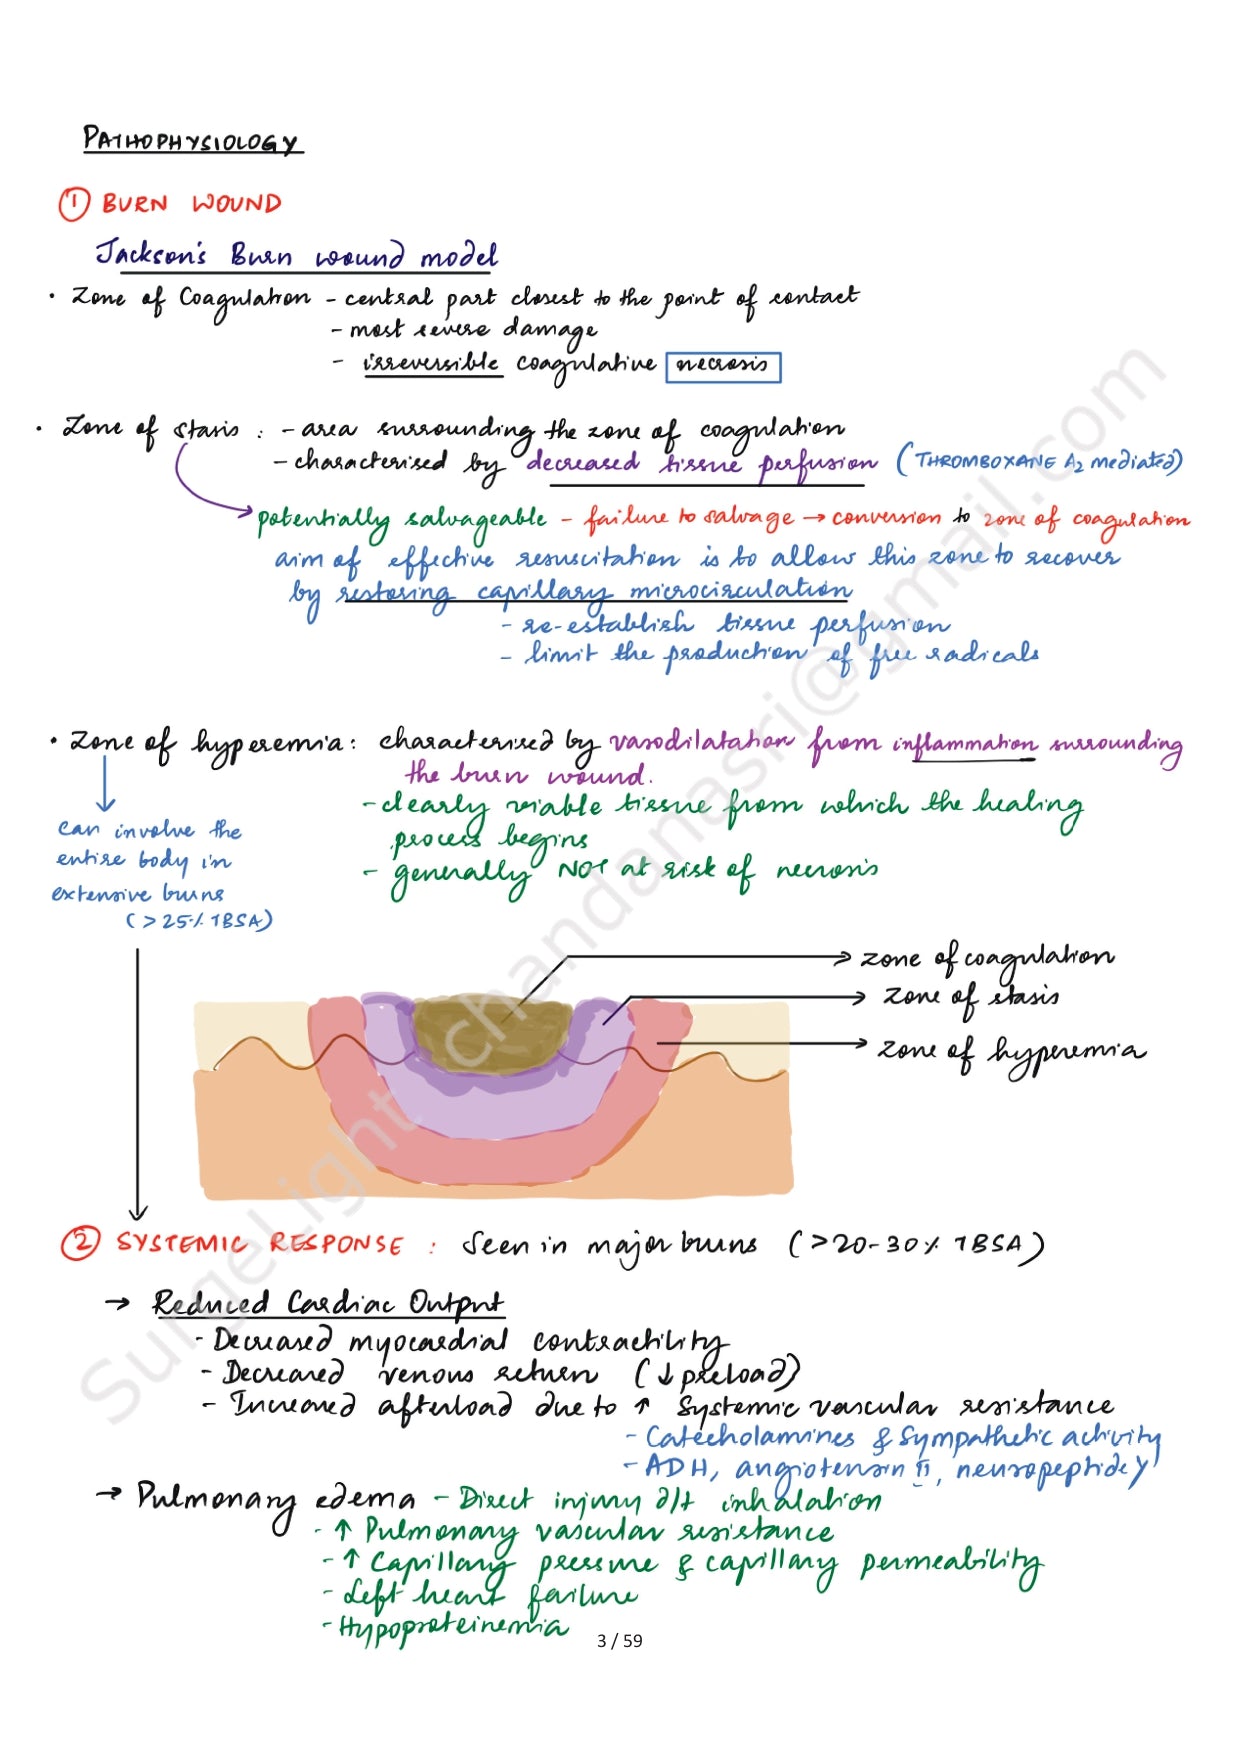 PATHOPHYSIOLOGY
① BURN WOUND
Jackson's Burn wound model
· Zone of Coagulation - central part closest to the point of contact
- most severe damage
- irreversible coagulative necrosis
· Zone of stasis : - area surrounding the zone of coagulation
- characterised by decreased tissue perfusion (THROMBOXANE A2 mediated)
potentially salvageable - failure to salvage → conversion to zone of coagulation
aim of effective resuscitation is to allow this zone to recover
by restoring capillary microcirculation
- re-establish tissue perfusion
- limit the production of free radicals
· Zone of hyperemia : characterised by vasodilatation from inflammation surrounding
the burn wound.
- clearly viable tissue from which the healing
process begins
- generally NOT at risk of necrosis
can involve the
entire body in
extensive burns
(>25% TBSA)
→ zone of coagulation
→ zone of stasis
→ zone of hyperemia
② SYSTEMIC RESPONSE : Seen in major burns (>20-30% TBSA)
→ Reduced Cardiac Output
- Decreased myocardial contractility
- Decreased venous return (↓ preload)
- Increased afterload due to ↑ Systemic vascular resistance
- Catecholamines & sympathetic activity
- ADH, angiotensin II, neuropeptide Y
→ Pulmonary edema - Direct injury d/t inhalation
- ↑ Pulmonary vascular resistance
- ↑ Capillary pressure & capillary permeability
- Left heart failure
- Hypoproteinemia
3 / 59
SurgeLight chandanasri@gmail.com